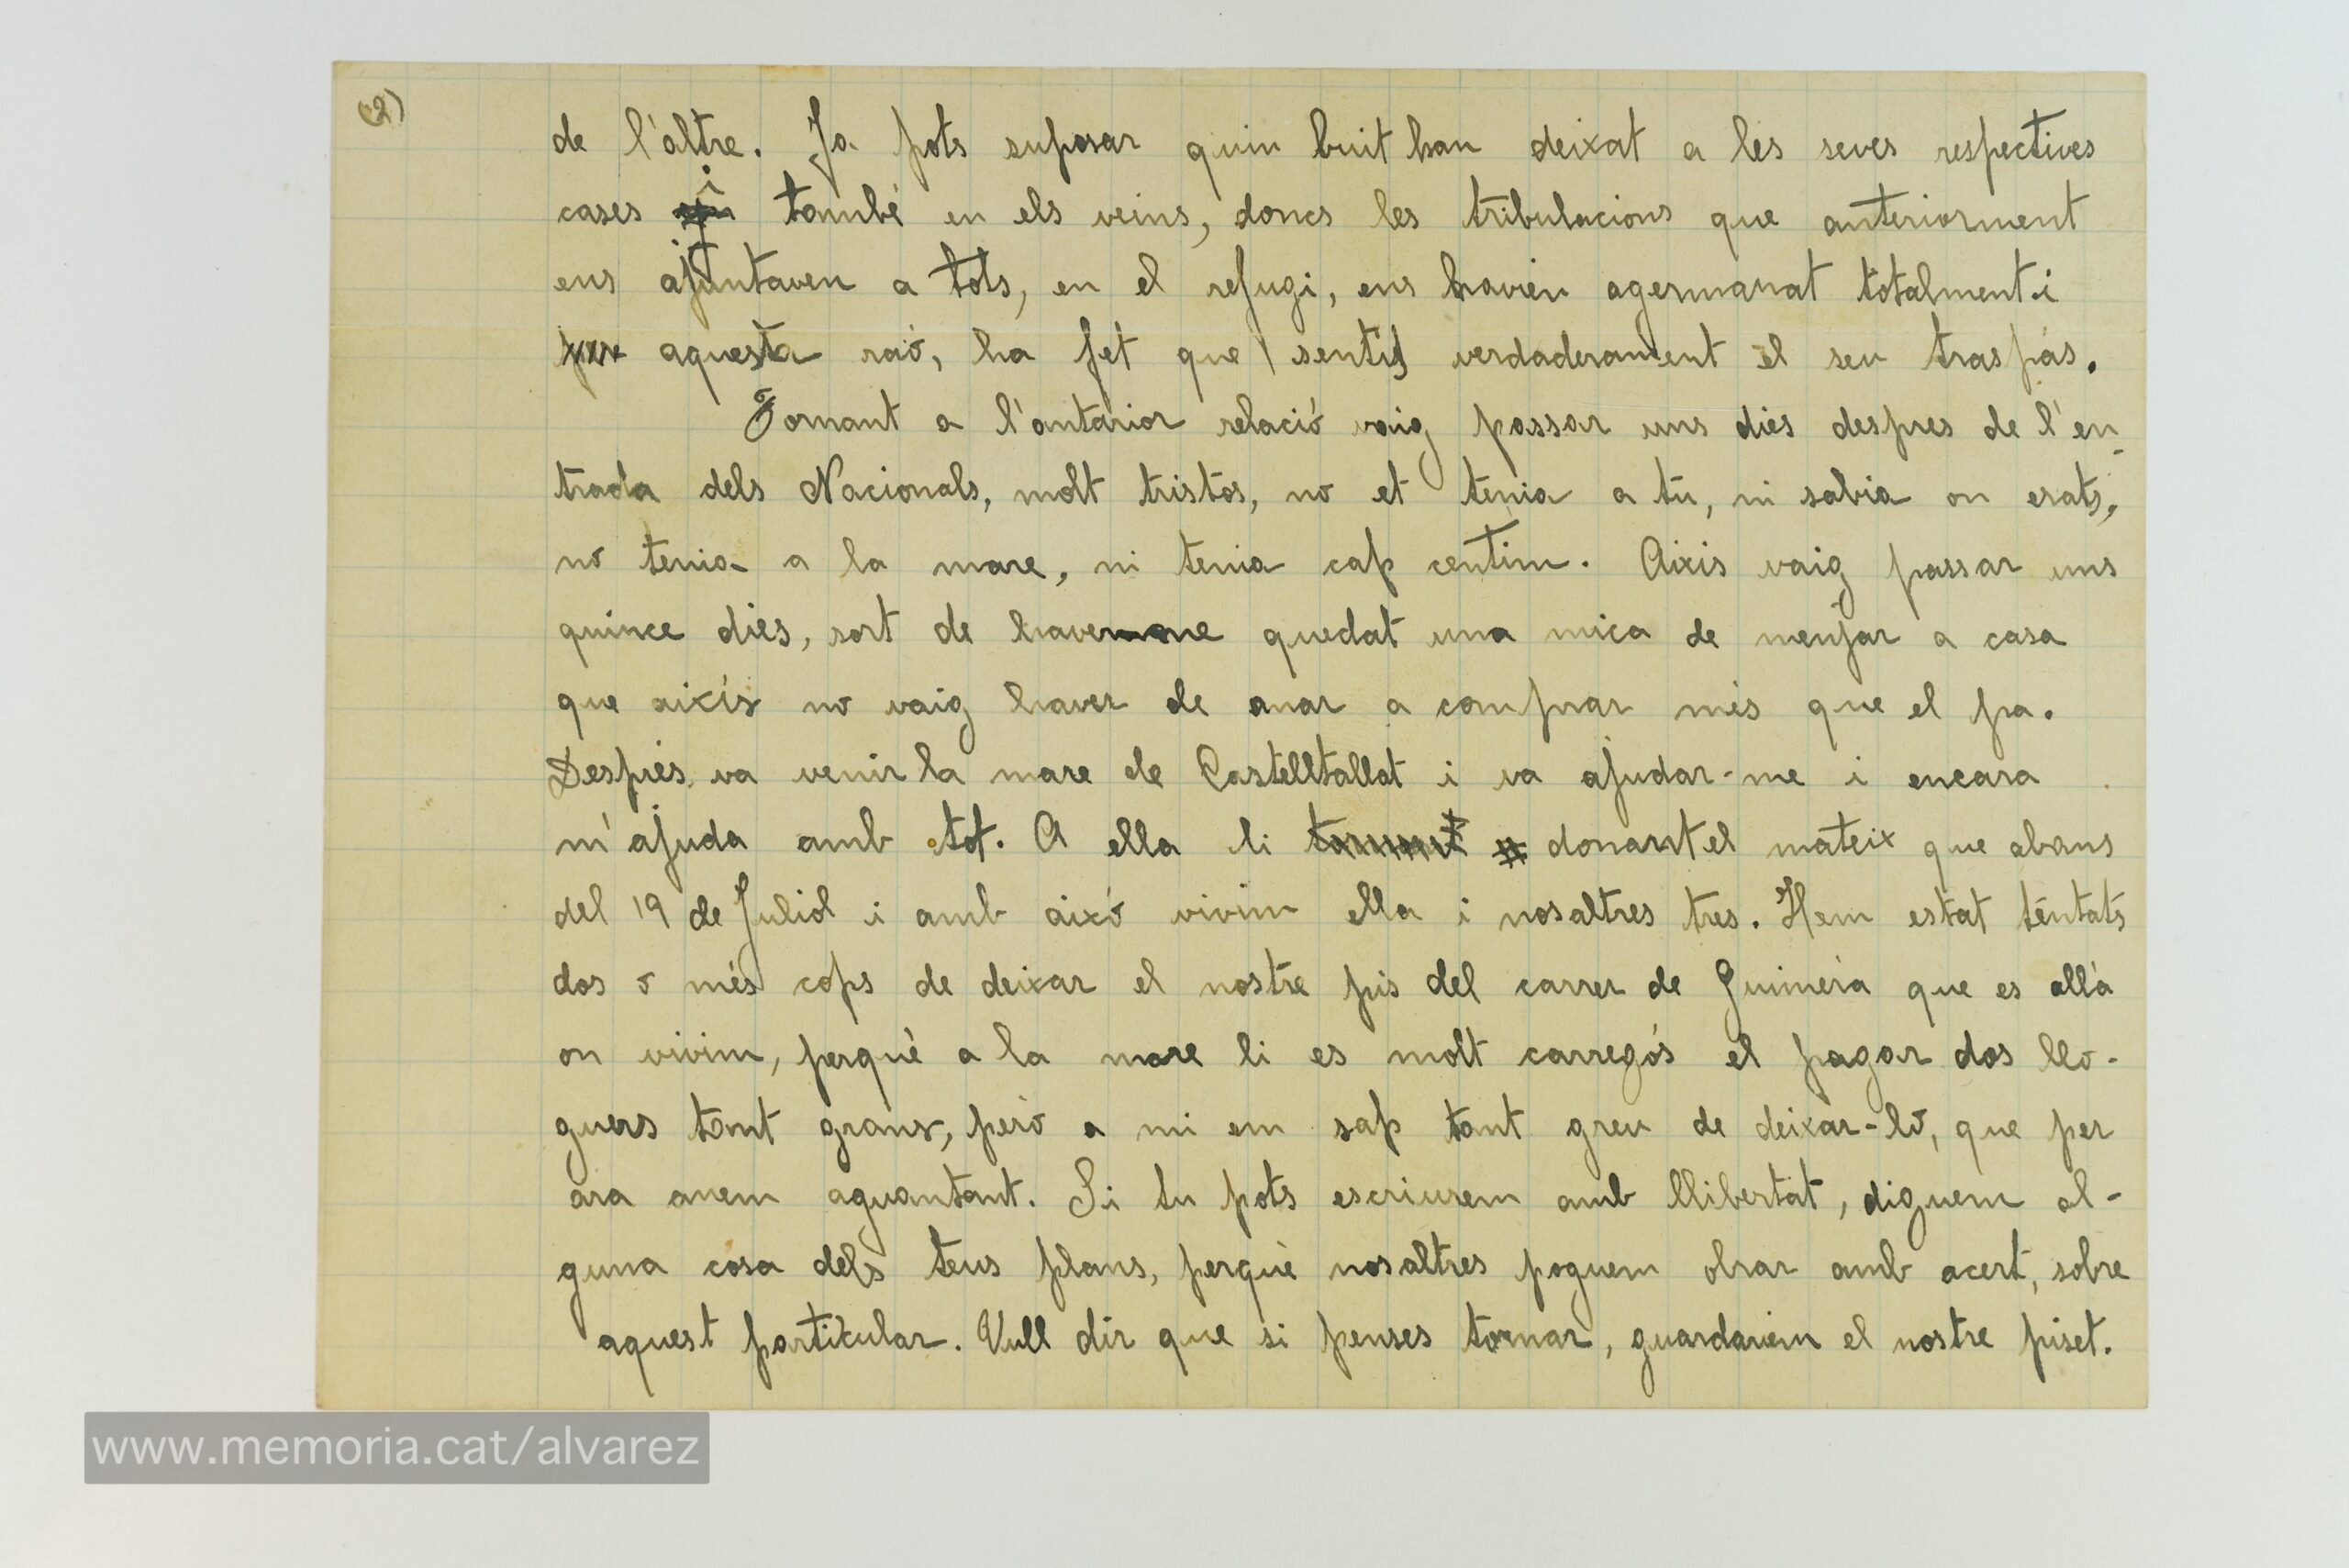 (2)
de l'altre. Ja pots suposar quin buit han deixat a les seves respectives
cases i també en els veins, doncs les tribulacions que anteriorment
ens ajuntaven a tots, en el refugi, ens havien agermanat totalment i
aquesta raó, ha fet que sentís verdaderament el seu traspás.
Tornant a l'antarior relació vaig passar uns dies despres de l'en-
trada dels Nacionals, molt tristos, no et tenia a tú, ni sabia on erats,
no tenia a la mare, ni tenia cap centim. Aixis vaig passar uns
quince dies, sort de haverme quedat una mica de menjar a casa
que aixís no vaig haver de anar a comprar més que el pa.
Després va venir la mare de Castelltallat i va ajudar-me i encara
m'ajuda amb tot. A ella li donant el mateix que abans
del 19 de Juliol i amb aixó vivim ella i nosaltres tres. Hem estat tentats
dos o més cops de deixar el nostre pis del carrer de Guimerà que es allà
on vivim, perquè a la mare li es molt carregós el pagar dos llo-
guers tant grans, però a mi em sap tant greu de deixar-lo, que per
ara anem aguantant. Si tu pots escriurem amb llibertat, diguem al-
guna cosa dels teus plans, perquè nosaltres poguem obrar amb acert, sobre
aquest particular. Vull dir que si penses tornar, guardarem el nostre piset.
www.memoria.cat/alvarez